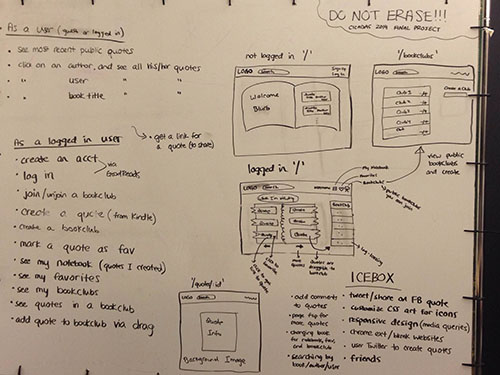 DO NOT ERASE!!!
CICADAS 2014 FINAL PROJECT
As a user (guest or logged in)
• see most recent public quotes
• click on an author, and see all his/her quotes
• " " user " "
• " " book title " "
↳ • get a link for a quote (to share)
As a logged in user
• create an acct
• log in
via GoodReads
• join/unjoin a bookclub
• create a quote (from Kindle)
• create a bookclub
• mark a quote as fav
• see my notebook (quotes I created)
• see my favorites
• see my bookclubs
• see quotes in a bookclub
• add quote to bookclub via drag
not logged in '/'
LOGO
Sign up
Log in
Welcome
Blurb
'/bookclubs'
LOGO
Create a Club
Club 1
Club 2
Club 3
Club 4
view public
bookclubs
and create
logged in '/'
LOGO
My Notebook
Favorites
Bookclubs
Quote
Quote
Quote
Quote
Quote
Quote
more quotes
quotes are
draggable to
bookclub
'/quote/:id'
LOGO
Quote
Info
Background Image
• add comments to
quotes
• page flip for
more quotes
• changing book
for notebook, fav,
and bookclub
• searching by
book/author/user
ICEBOX
• tweet/share on FB quote
• customize CSS art for icons
• responsive design (media queries)
• chrome ext/ blank websites
• user Twitter to create quotes
• friends